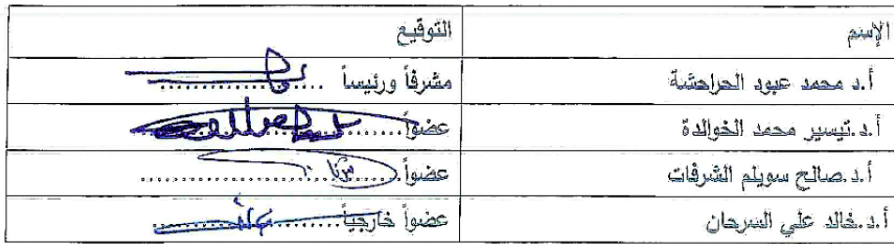 الإسم التوقيع
أ.د محمد عبود الحراحشة مشرفاً ورئيساً ....................
أ.د.تيسير محمد الخوالدة عضواً....................
أ.د.صالح سويلم الشرفات عضواً....................
أ.د.خالد علي السرحان عضواً خارجياً....................